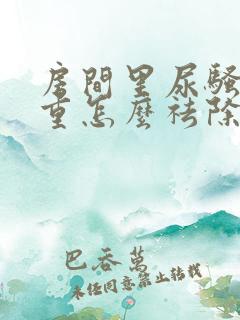 房間里尿騷
重怎麼祛除
巴吞萬
未經同意禁止轉載